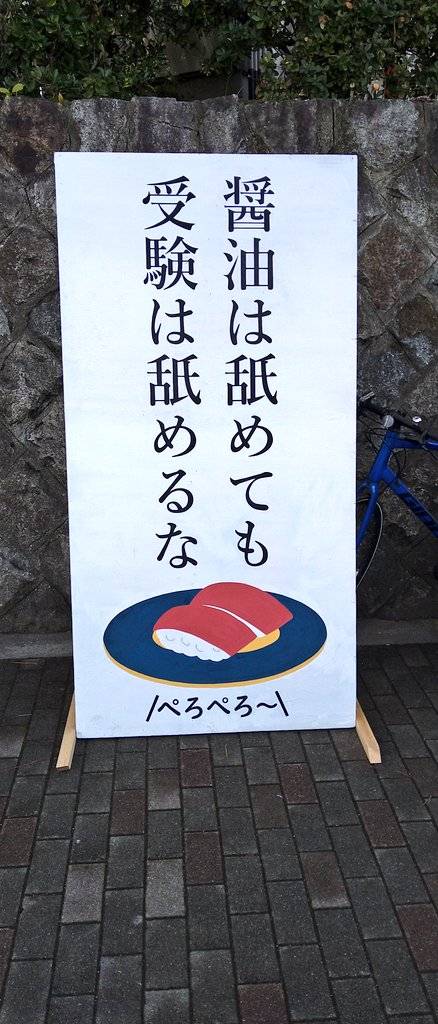 醤油は舐めても
受験は舐めるな
/ぺろぺろ〜\